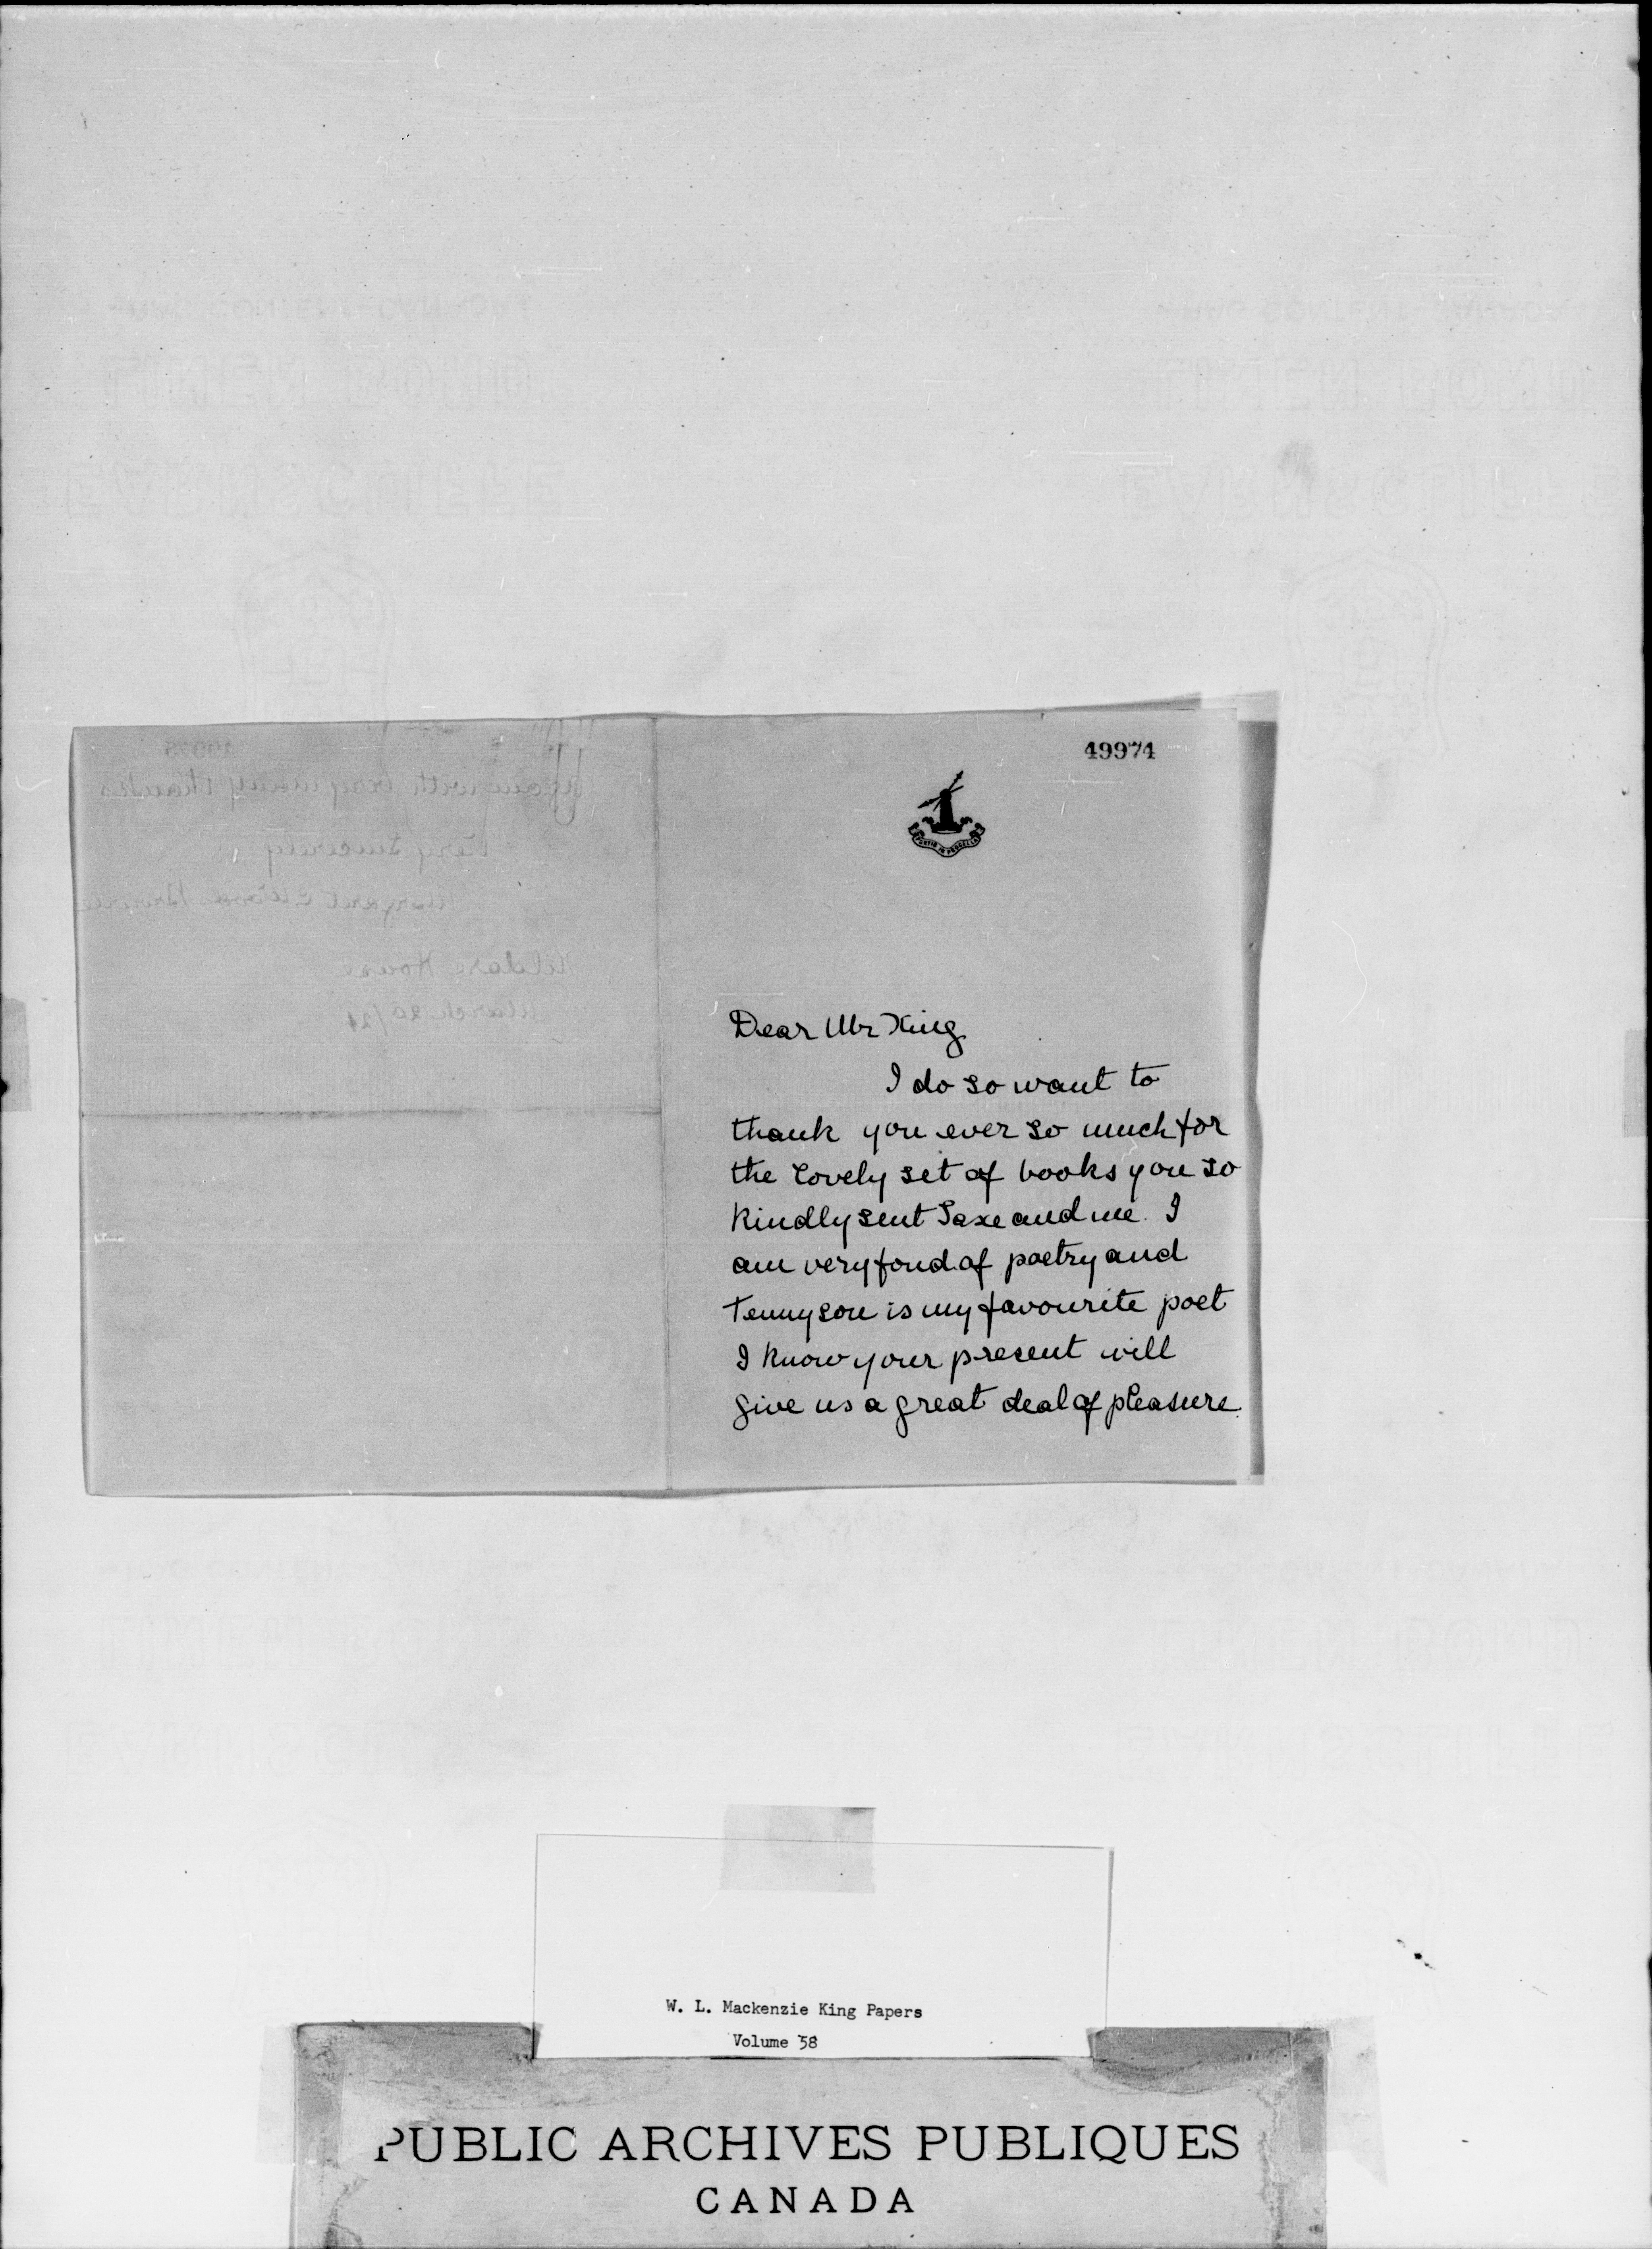 49974
FORTIS IN PROCELLA
Dear Mr King
I do so want to
thank you ever so much for
the lovely set of books you so
kindly sent Saxe and me. I
am very fond of poetry and
Tennyson is my favourite poet
I know your present will
give us a great deal of pleasure.
again with very many thanks
Very sincerely
Margaret
Kildare House
March 20/21
W. L. Mackenzie King Papers
Volume 58
PUBLIC ARCHIVES PUBLIQUES
CANADA